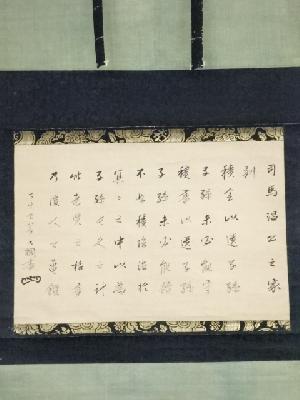 司馬温公之家
訓
積金以遺子孫
子孫未必能守
積書以遺子孫
子孫未必能讀
不如積陰德於
冥々之中以為
子孫長久之計
此先賢之格言
乃後人之龜鑑